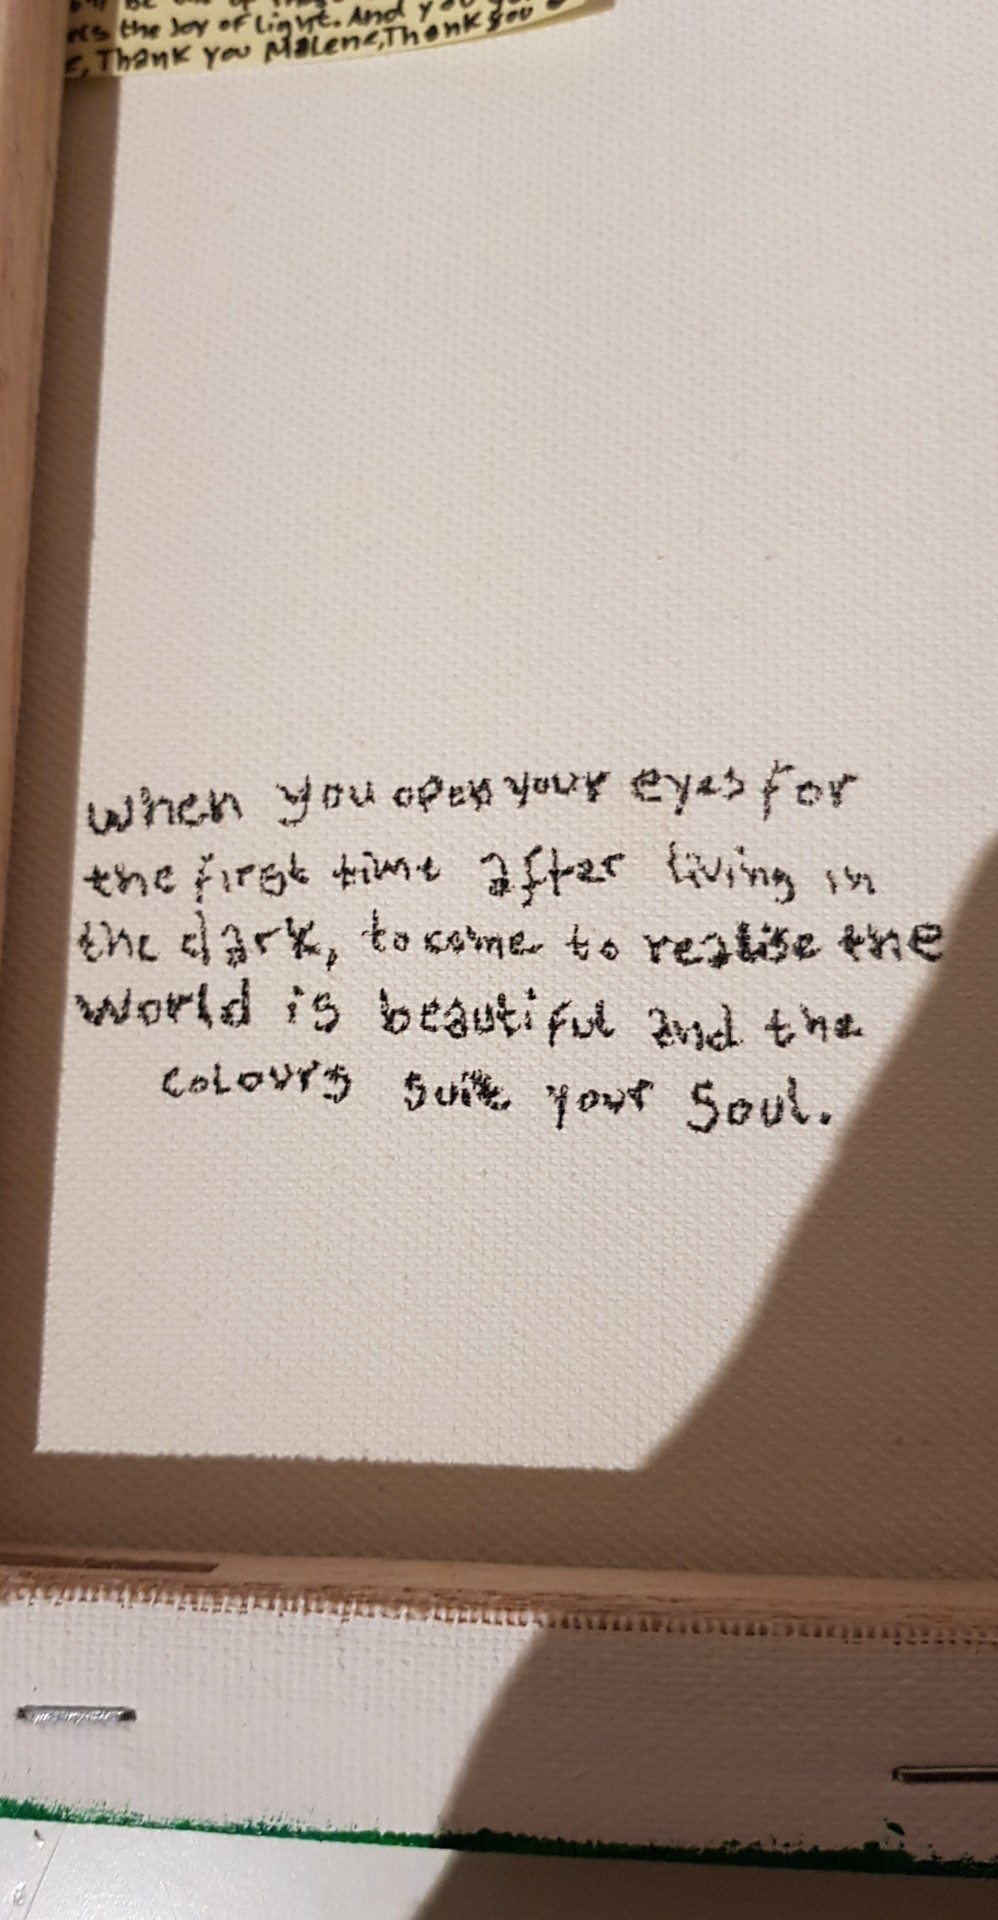 the Joy of Light. And you
Thank you Malene, Thank you
when you open your eyes for
the first time after living in
the dark, to come to realise the
world is beautiful and the
colours suit your soul.